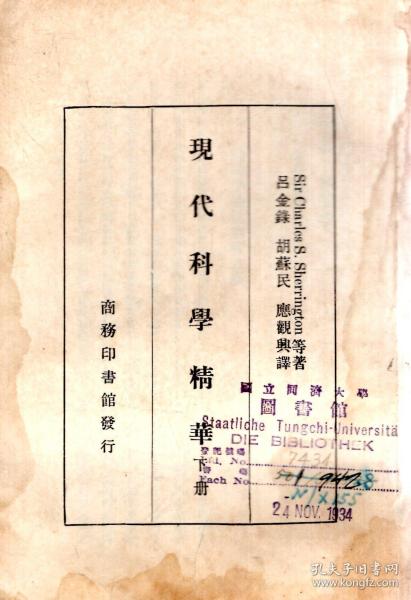 Sir Charles S. Sherrington 等著
呂金錄 胡蘇民 應觀興譯
現代科學精華下册
商務印書館發行
國立同濟大學
圖書館
Staatliche Tungchi-Universitä
DIE BIBLIOTHEK
登記號碼
No. 7434
書碼
Fach No.
24 NOV. 1934
孔夫子旧书网
www.kongfz.com